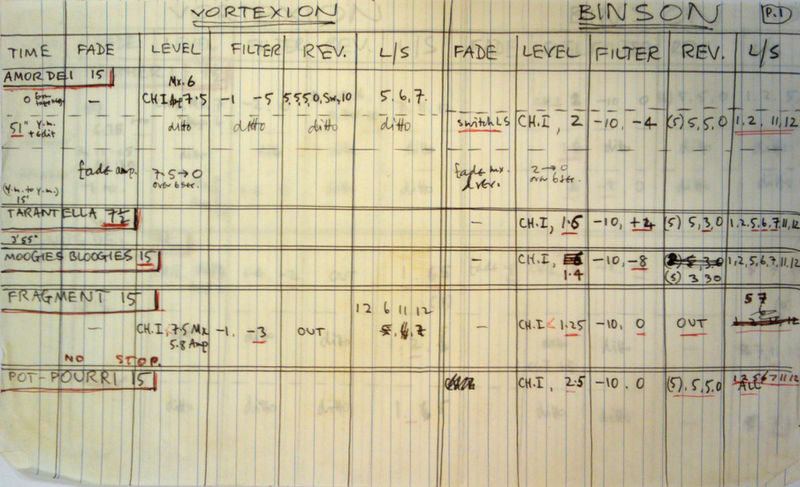 VORTEXION BINSON P.1
TIME FADE LEVEL FILTER REV. L/S FADE LEVEL FILTER REV. L/S
AMOR DEI 15 Mx.6
0 — CH.I 7.5 -1 -5 5,5,5,0,Sw,10 5, 6, 7.
51" Y.M. + Edit ditto ditto ditto ditto switch LS CH.I, 2 -10, -4 (5) 5,5,0 1, 2, 11, 12
fade amp. 7.5→0 over 6 sec. fade mx. 2→0 over 6 sec.
(Y.M. to Y.M.) 15'
TARANTELLA 7½ — CH.I, 1.6 -10, +2 (5) 5,3,0 1,2,5,6,7,11,12
2'55"
MOOGIES BLOOGIES 15 — CH.I, -10, -8 1,2,5,6,7,11,12
1.4 (5) 3 30
FRAGMENT 15 12 6 11 12 5 7
— CH.I, 7.5 Mx -1, -3 OUT 7 — CH.I 1.25 -10, 0 OUT
5.8 Amp
NO STOP.
POT-POURRI 15 CH.I, 2.5 -10, 0 (5), 5,5,0 ALL